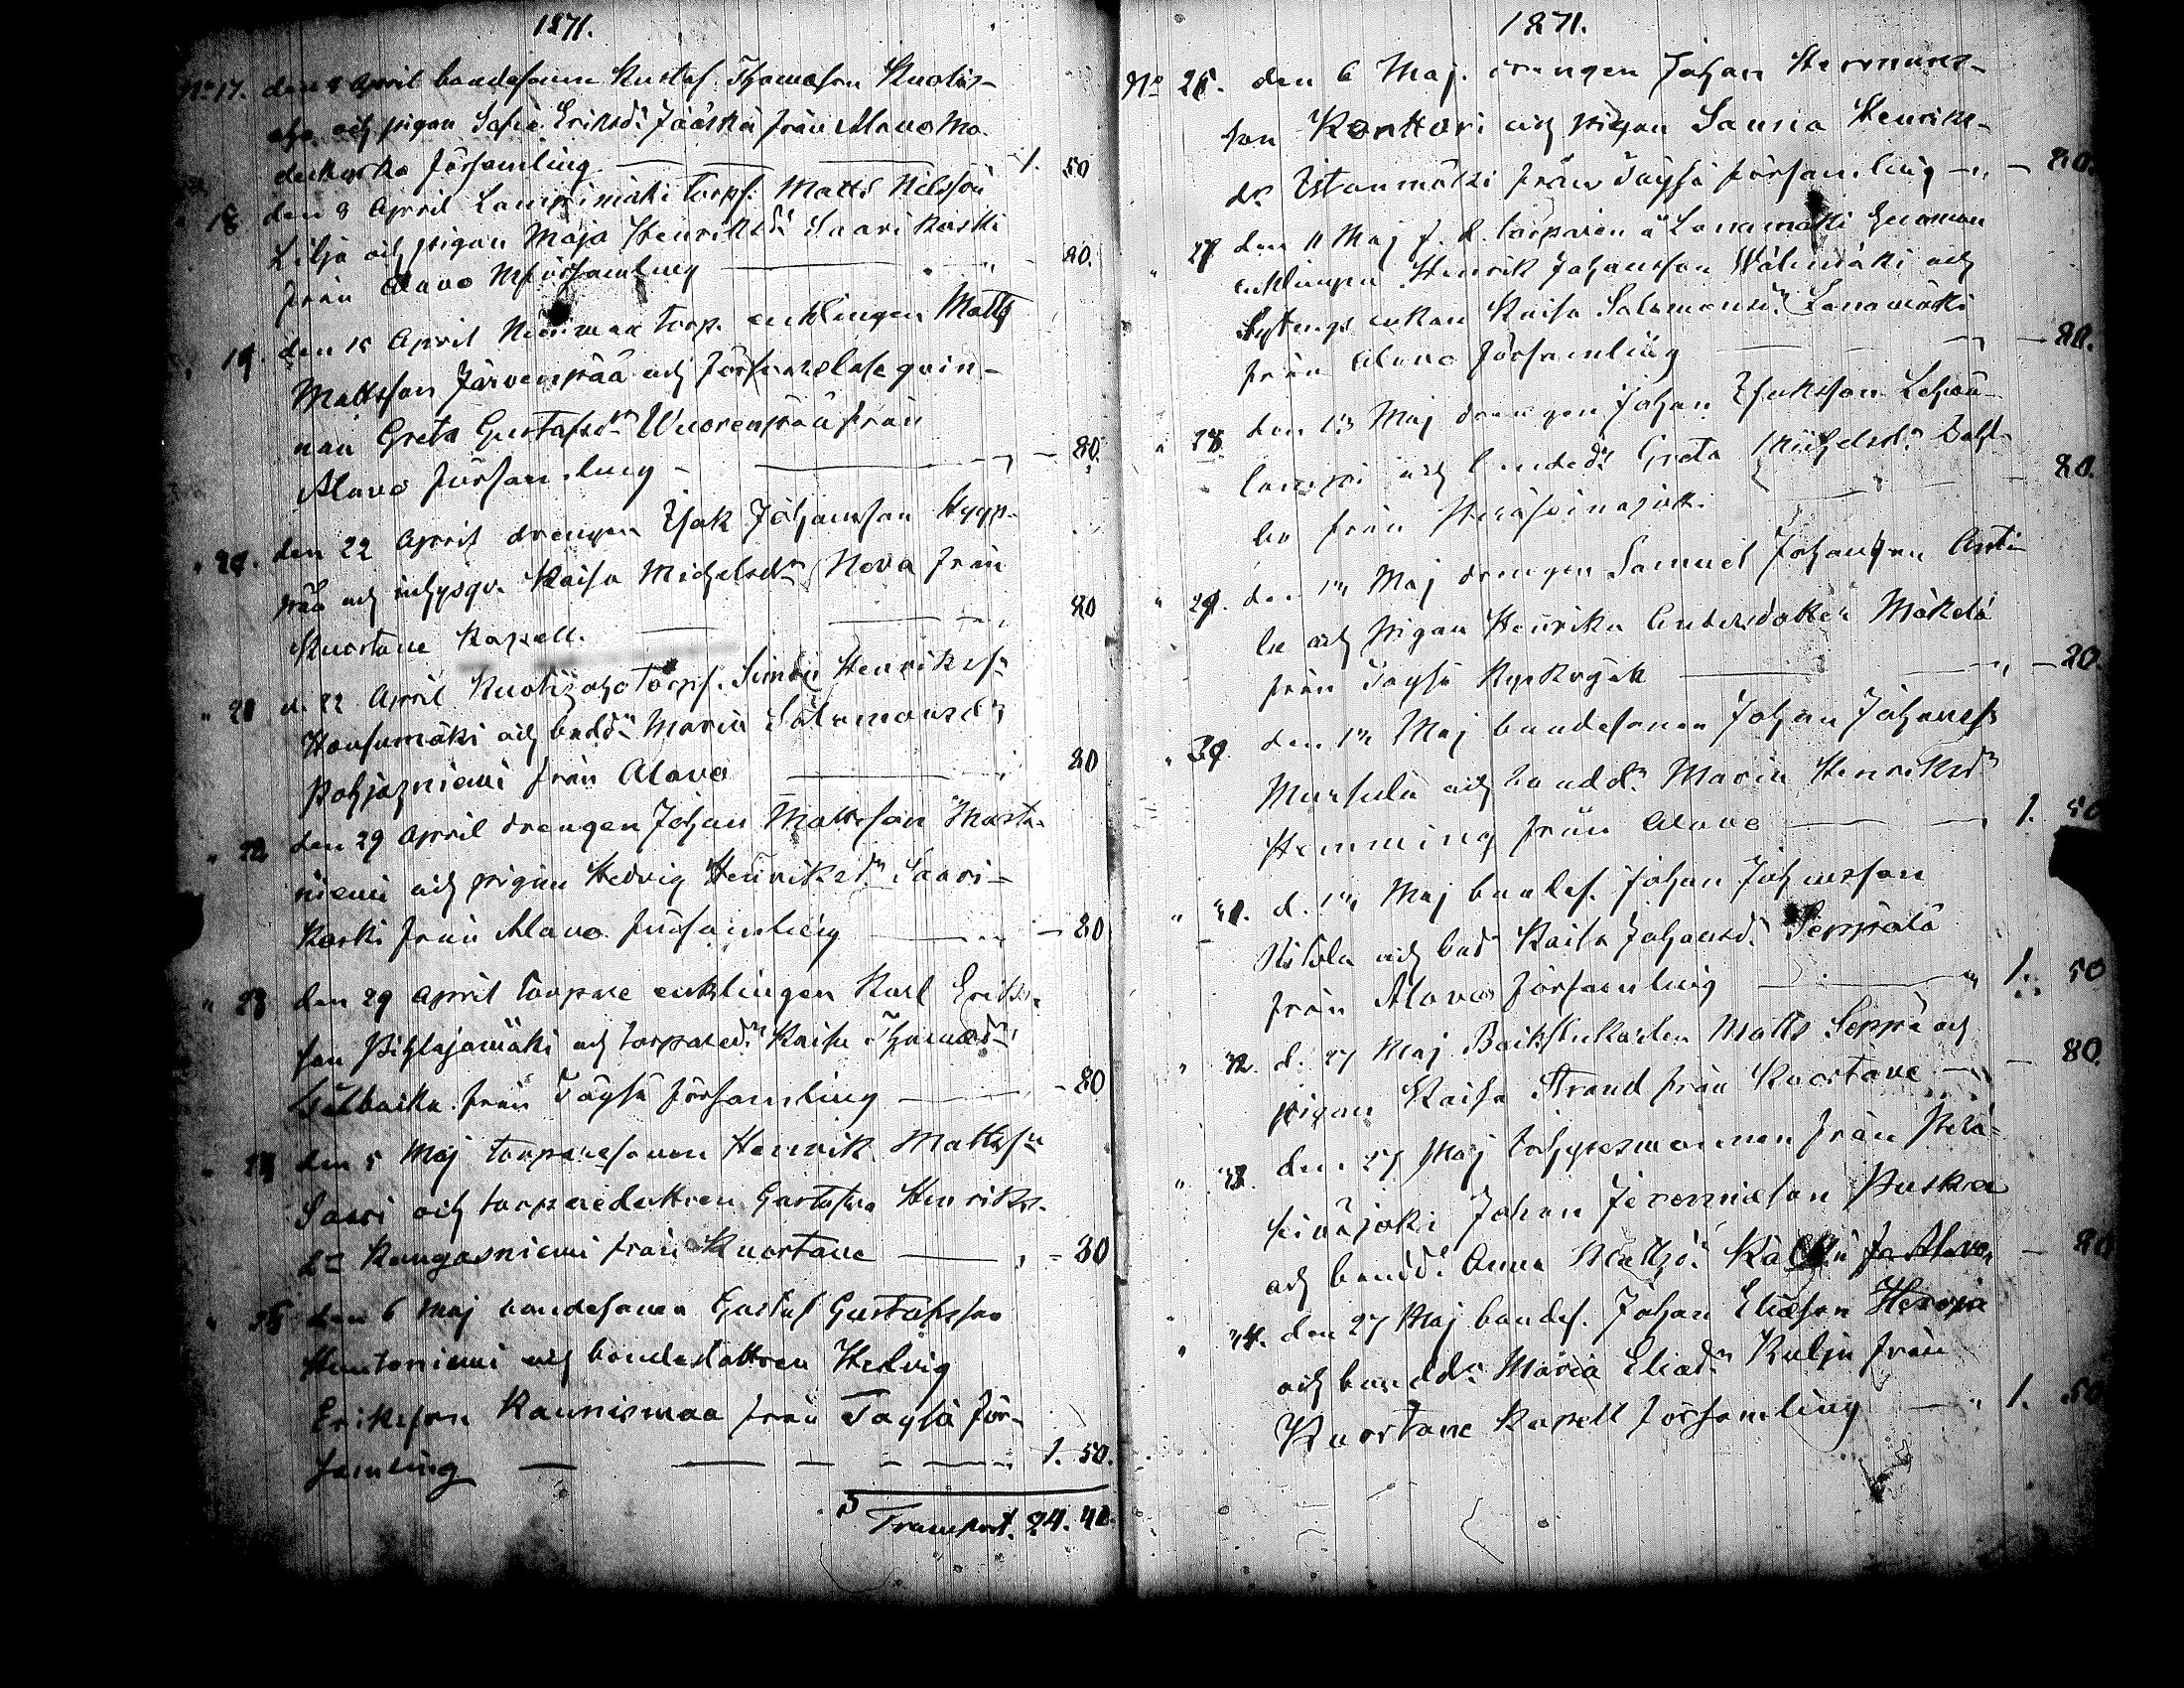 1871.
No 17. den 8 April bondesonen Kustaf Thomasson Kuotis-
aho och pigan Sofia Eriksdr Jääskä från Alavo Mo-
derkyrko församling — — — 1. 50
" 18 den 8 April Lampimäki torpf. Matts Nilsson
Lilja och pigan Maja Henriksdr Saarikoski
från Alavo Mförsamling — " — 80.
" 19. den 15 April Niinimaa torp. enklingen Matts
Mattsson Järvenpää och försvarslösa qvin-
nan Greta Gustafsdr Wuorenpää från
Alavo församling — — — 80.
" 20. den 22 April drengen Isak Johansson Hyyp-
pää och inhysqv. Kaisa Michelsdr Neva från
Kuortane Kapell. — — 80
" 21 d. 22 April Kuotisaho torpf. Simon Henrikss:n
Hausumäki och bondr Maria Salomonsdr
Pohjasniemi från Alavo — 80
" 22 den 29 April drengen Johan Mattsson Musta-
niemi och pigan Hedvig Henriksdr Saari-
koski från Alavo församling — — 80
" 23 den 29 April torpare enklingen Karl Eriks-
son Pihlajamäki och torparedr Kaisa Thomasdr
från Töysä församling — - 80
" 24 den 5 Maj torparesonen Henrik Mattss:n
Saari och torparedottren Gustafva Henriks-
dr Kangasniemi från Kuortane — " - 80
" 25 den 6 Maj bondesonen Gustaf Gustafsson
Huntoniemi och bondedottren Hedvig
Eriksson Kaunismaa från Töysä för-
samling — — — — 1. 50.
S Transport. 24. 40.
1871.
No 26. den 6 Maj. drengen Johan Hermans-
son Konttori och pigan Sanna Henriks-
dr Ystanmäki från Töysä församling — " — 80.
" 27 den 11 Maj f. d. torparen å Lanamäki hemman
enklingen Henrik Johansson Wälimäki och
Sytnings enkan Kaisa Salomonsdr Lanamäki
från Alavo församling — — — 80.
" 28 den 13 Maj drengen Johan Isaksson Lehti-
lampi och bondedr Greta Michelsdr
från Peräseinäjoki. — 80.
" 29. den Maj drengen Samuel Johansson Antti-
la och pigan Henrika Andersdotter Mäkelä
från Töysä Kyrkogäll — " — 20.
" 30. den Maj bondesonen Johan Johanss:
och bonddr Maria Henriksdr
Hemming från Alavo — — 1. 50
" 31. d. Maj bondes. Johan Johansson
och bdr Kaisa Johansdr Seppälä
från Alavo församling — " 1. 50
" 32. d. 27 Maj Backstukarlen Matts Seppä och
pigan Kaisa Strand från Kuortane — — 80.
" 33. den 27 Maj från Perä-
seinäjoki Johan Jeremiasson Puskra
och bonddr Anna Mattsdr fr Alavo — 80
" 34. den 27 Maj bondes. Johan Eliasson Heroja
och bonddr Maria Eliasdr Kulju från
Kuortane Kapell församling — " 1. 50